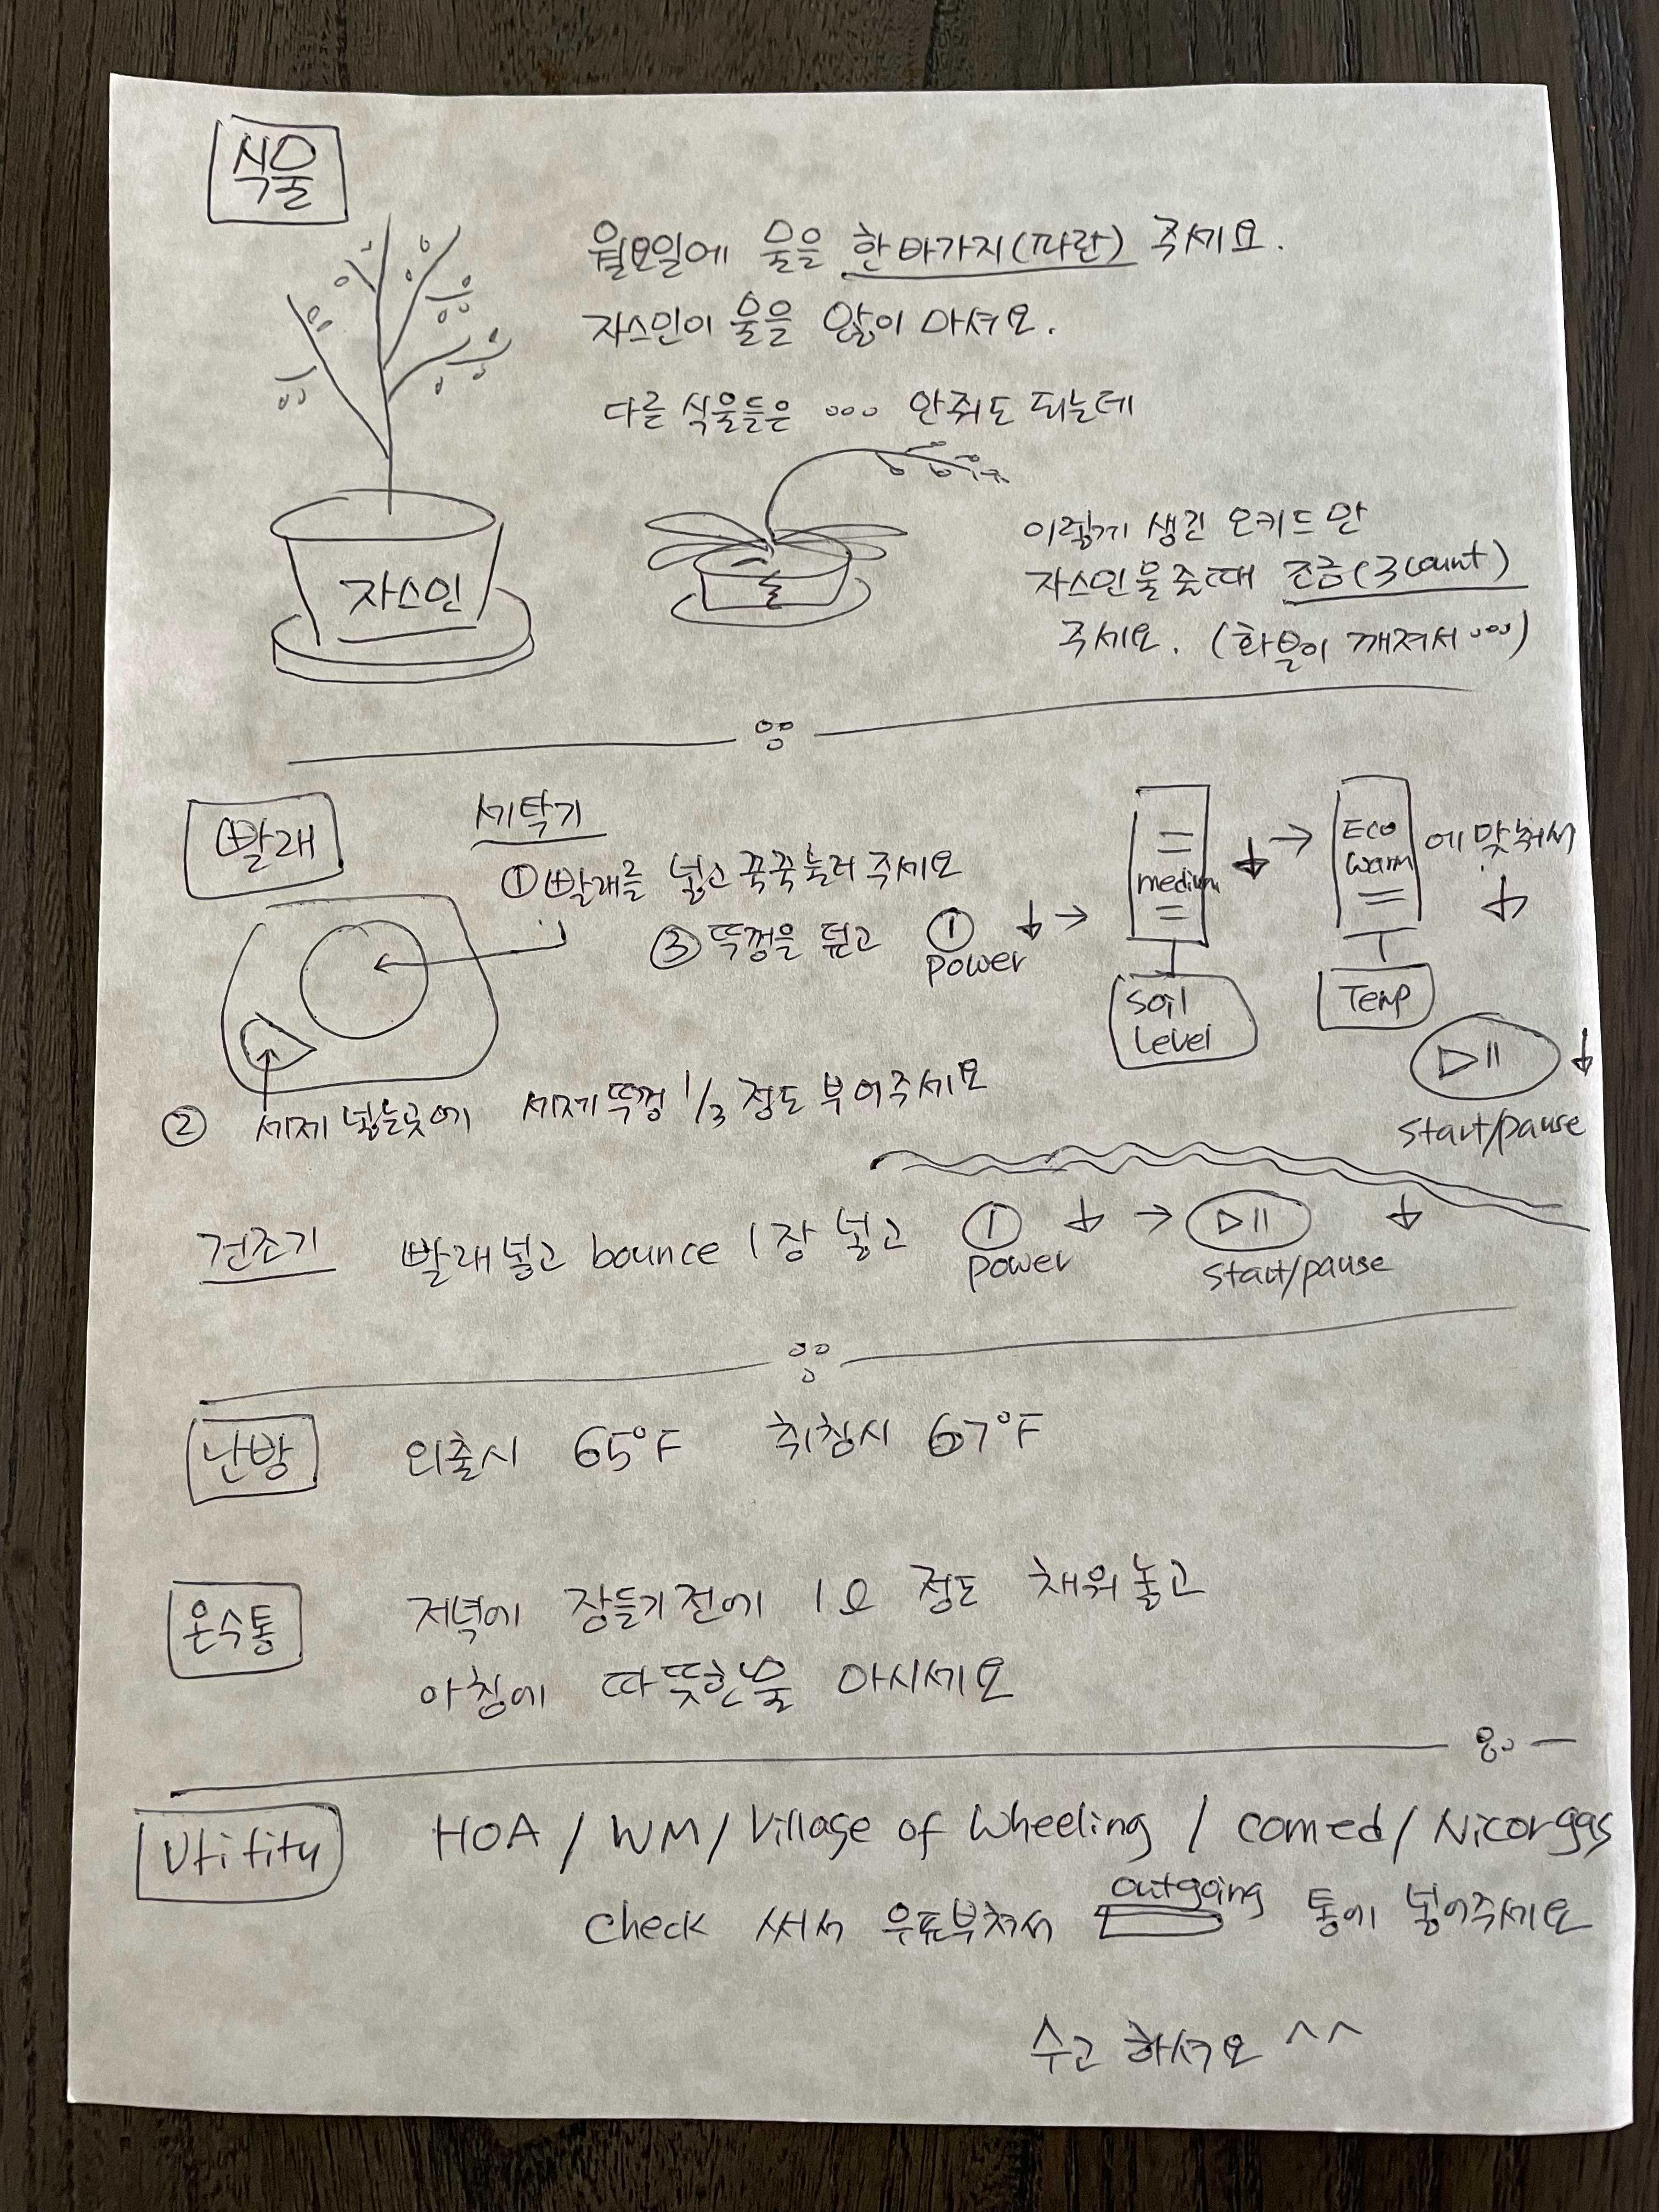 식물
월요일에 물을 한바가지(파란) 주세요.
자스민이 물을 많이 마셔요.
다른 식물들은 ∘∘∘ 안줘도 되는데
이렇게 생긴 오키드만
자스민 물 줄때 조금(3count)
주세요. (화분이 깨져서 ∘∘∘)
자스민
빨래
세탁기
① 빨래를 넣고 꾹꾹눌러 주세요
③ 뚜껑을 덮고 power ↓ → medium ↓ → Eco warm 에 맞춰서 ↓
soil level
Temp
▷II ↓
start/pause
② 세제 넣는곳에 세제뚜껑 1/3 정도 부어주세요
건조기 빨래넣고 bounce 1장 넣고 power ↓ → ▷II ↓
start/pause
난방 외출시 65°F 취침시 67°F
온수통 저녁에 잠들기전에 1.0 정도 채워놓고
아침에 따뜻한물 마시세요
Utility HOA / WM / Village of Wheeling / comed / Nicorgas
check 써서 우표부쳐서 outgoing 통에 넣어주세요
수고 하셔요 ^^